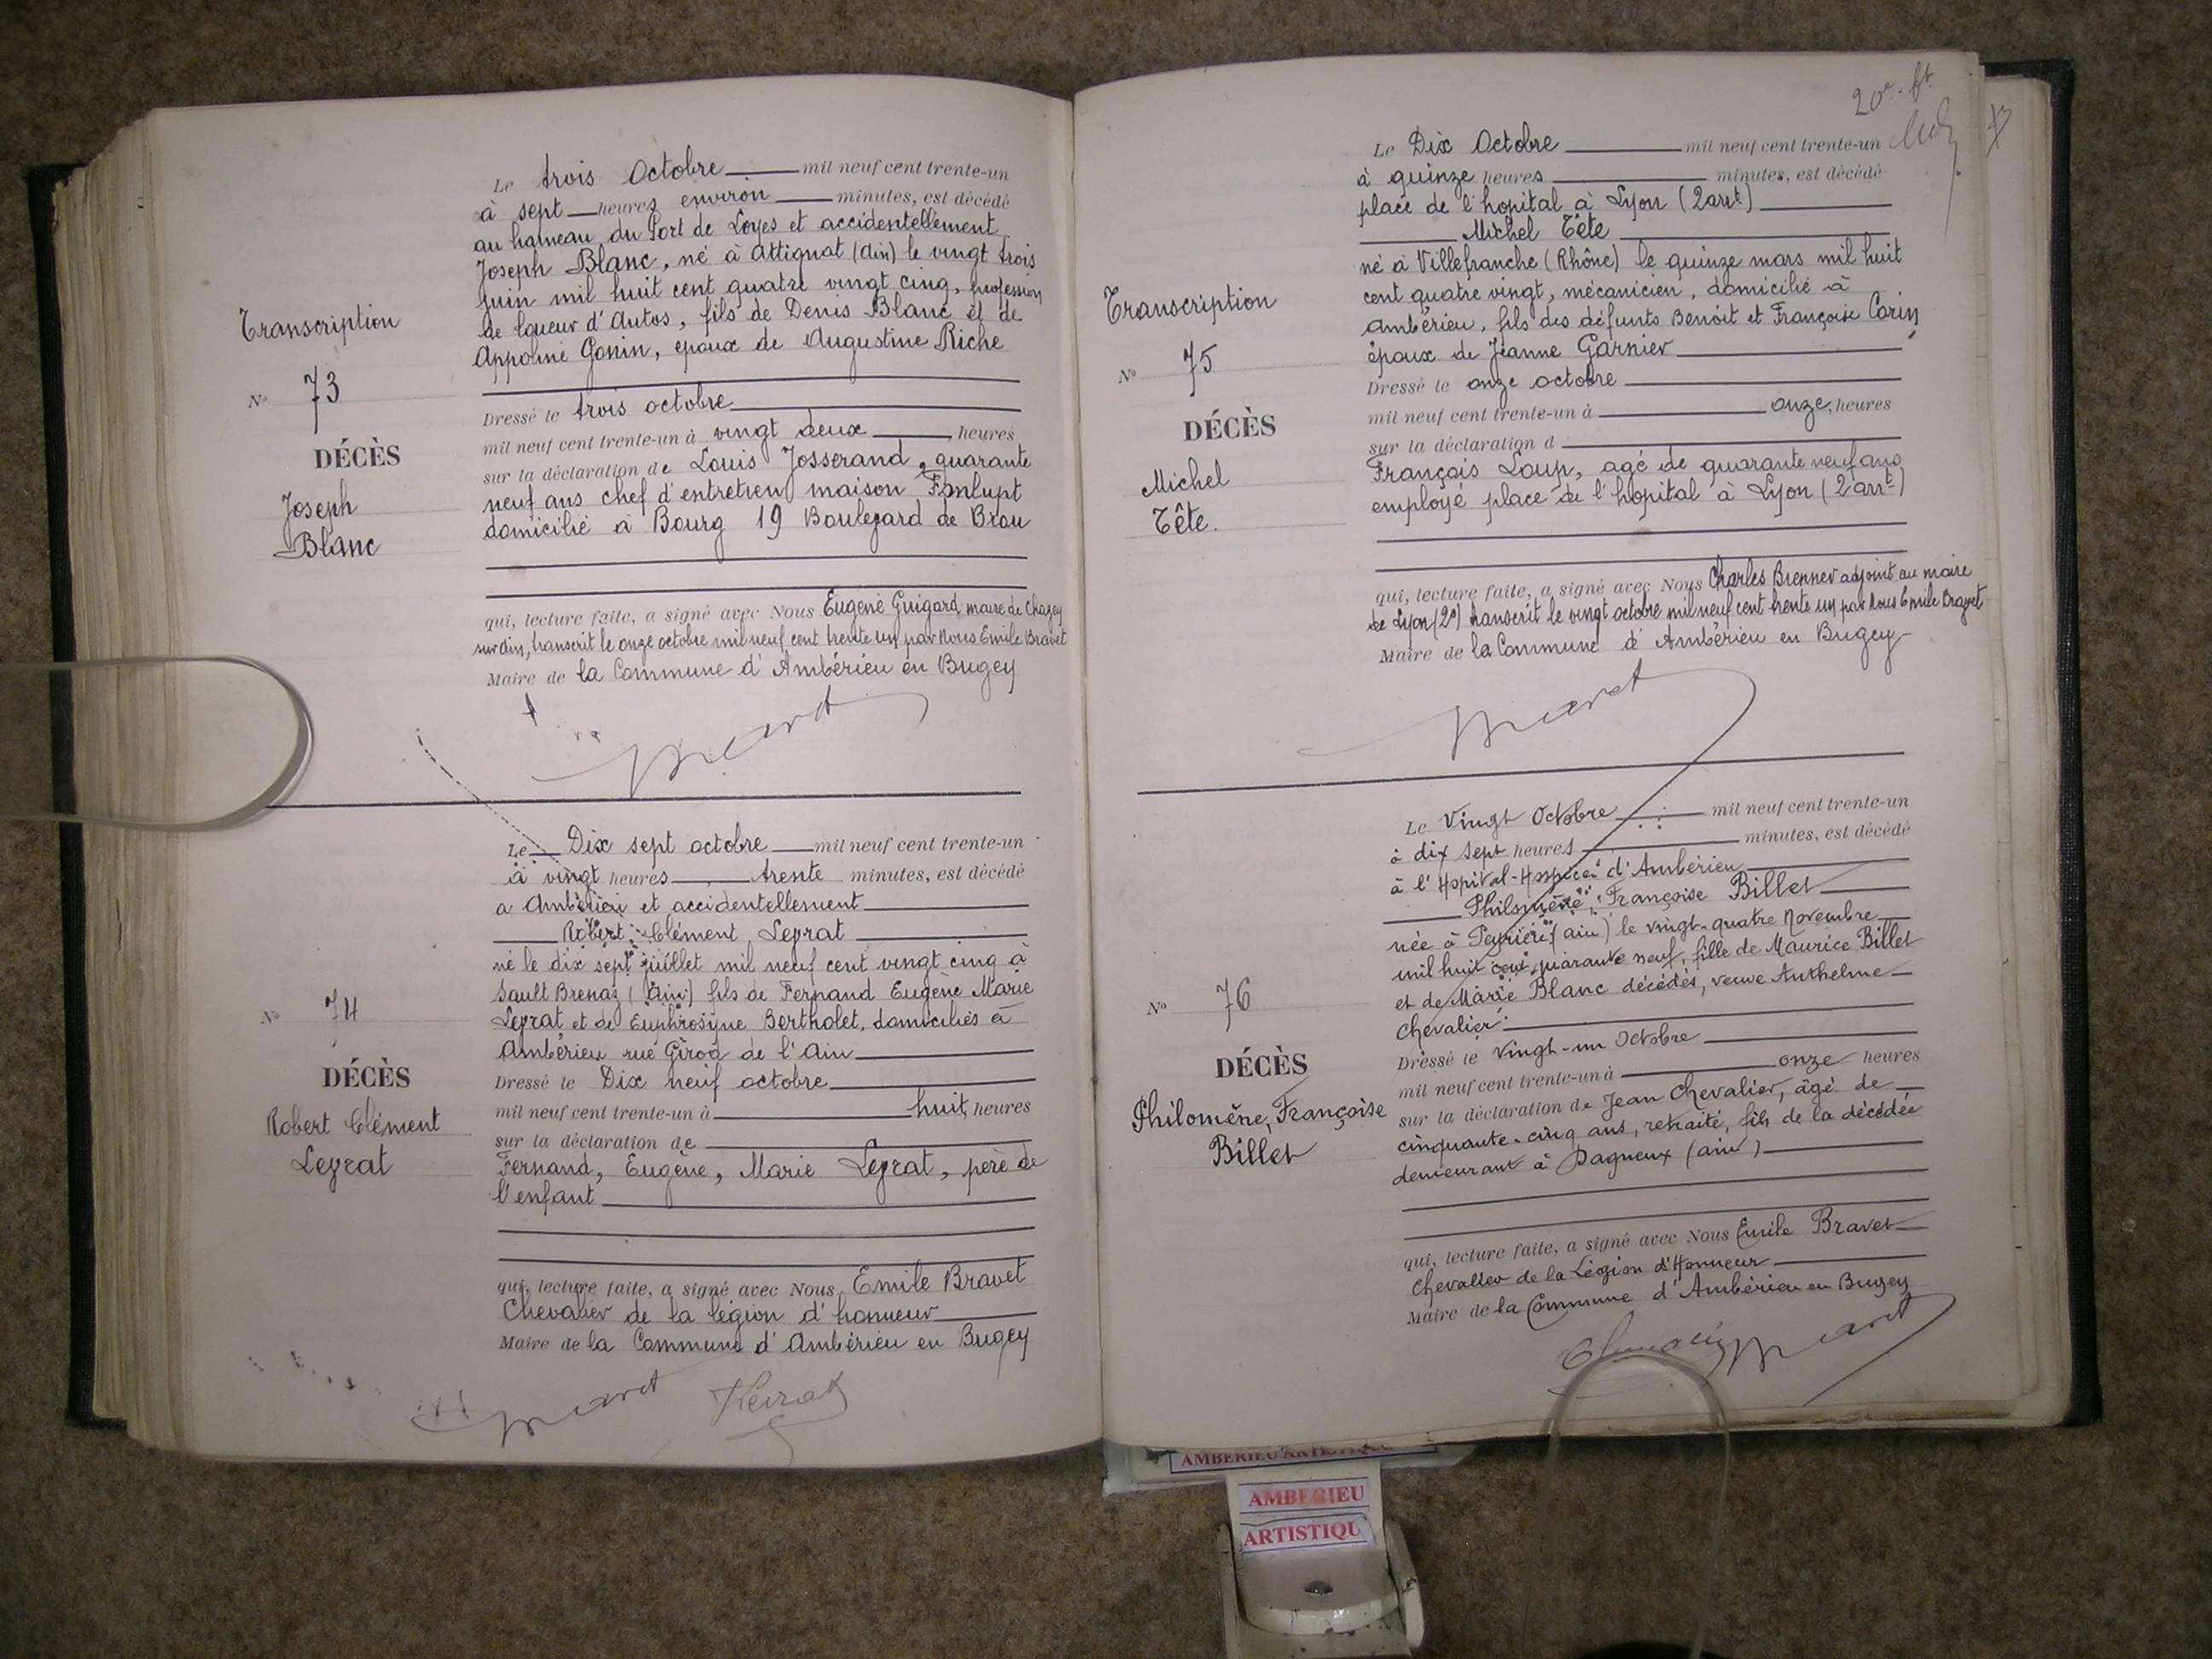 Transcription
N° 73
DÉCÈS
Joseph
Blanc
Le trois Octobre mil neuf cent trente-un
à sept heures environ minutes, est décédé
au hameau du Port de Loyes et accidentellement
Joseph Blanc, né à Attignat (Ain) le vingt trois
juin mil huit cent quatre vingt cinq, profession
de loueur d'autos, fils de Denis Blanc et de
Appoline Gonin, époux de Augustine Riche
Dressé le trois octobre
mil neuf cent trente-un à vingt deux heures
sur la déclaration de Louis Josserand, quarante
neuf ans chef d'entretien maison Fonlupt
domicilié à Bourg 19 Boulevard de Brou
qui, lecture faite, a signé avec Nous Eugène Guigard maire de Chazey
sur Ain, transcrit le onze octobre mil neuf cent trente un par Nous Emile Bravet
Maire de la Commune d'Ambérieu en Bugey
N° 74
DÉCÈS
Robert Clément
Leyrat
Le Dix sept octobre mil neuf cent trente-un
à vingt heures trente minutes, est décédé
a Ambérieu et accidentellement
Robert Clément Leyrat
né le dix sept juillet mil neuf cent vingt cinq à
Sault Brenaz (Ain) fils de Fernand Eugène Marie
Leyrat et de Euphrosyne Bertholet, domiciliés à
Ambérieu rue Girod de l'Ain
Dressé le Dix neuf octobre
mil neuf cent trente-un à huit heures
sur la déclaration de
Fernand, Eugène, Marie Leyrat, père de
l'enfant
qui, lecture faite, a signé avec Nous Emile Bravet
Chevalier de la légion d'honneur
Maire de la Commune d'Ambérieu en Bugey
Bravet Leyrat
20e
Transcription
N° 75
DÉCÈS
Michel
Tête.
Le Dix Octobre mil neuf cent trente-un
à quinze heures minutes, est décédé
place de l'hopital à Lyon (2 arrt)
Michel Tête
né à Villefranche (Rhône) le quinze mars mil huit
cent quatre vingt, mécanicien, domicilié à
Ambérieu, fils des défunts Benoit et Françoise Carin
époux de Jeanne Garnier
Dressé le onze octobre
mil neuf cent trente-un à onze, heures
sur la déclaration d
François Loup, agé de quarante neuf ans
employé place de l'hopital à Lyon (2 arrt)
qui, lecture faite, a signé avec Nous Charles Brenner adjoint au maire
de Lyon (2e) transcrit le vingt octobre mil neuf cent trente un par Nous Emile Bravet
Maire de la Commune d'Ambérieu en Bugey
N° 76
DÉCÈS
Philomène, Françoise
Billet
Le Vingt Octobre mil neuf cent trente-un
à dix sept heures minutes, est décédé
à l'Hopital-Hospice d'Ambérieu
Philomène, Françoise Billet
née à Peyrieu (ain) le vingt-quatre Novembre
mil huit cent quarante neuf, fille de Maurice Billet
et de Marie Blanc décédés, veuve Anthelme
Chevalier.
Dressé le Vingt-un Octobre
mil neuf cent trente-un à onze heures
sur la déclaration de Jean Chevalier, âgé de
cinquante-cinq ans, retraité, fils de la décédée
demeurant à Dagneux (ain)
qui, lecture faite, a signé avec Nous Emile Bravet
Chevalier de la Légion d'Honneur
Maire de la Commune d'Ambérieu en Bugey
AMBERIEU ARTISTIQUE
AMBERIEU
ARTISTIQU